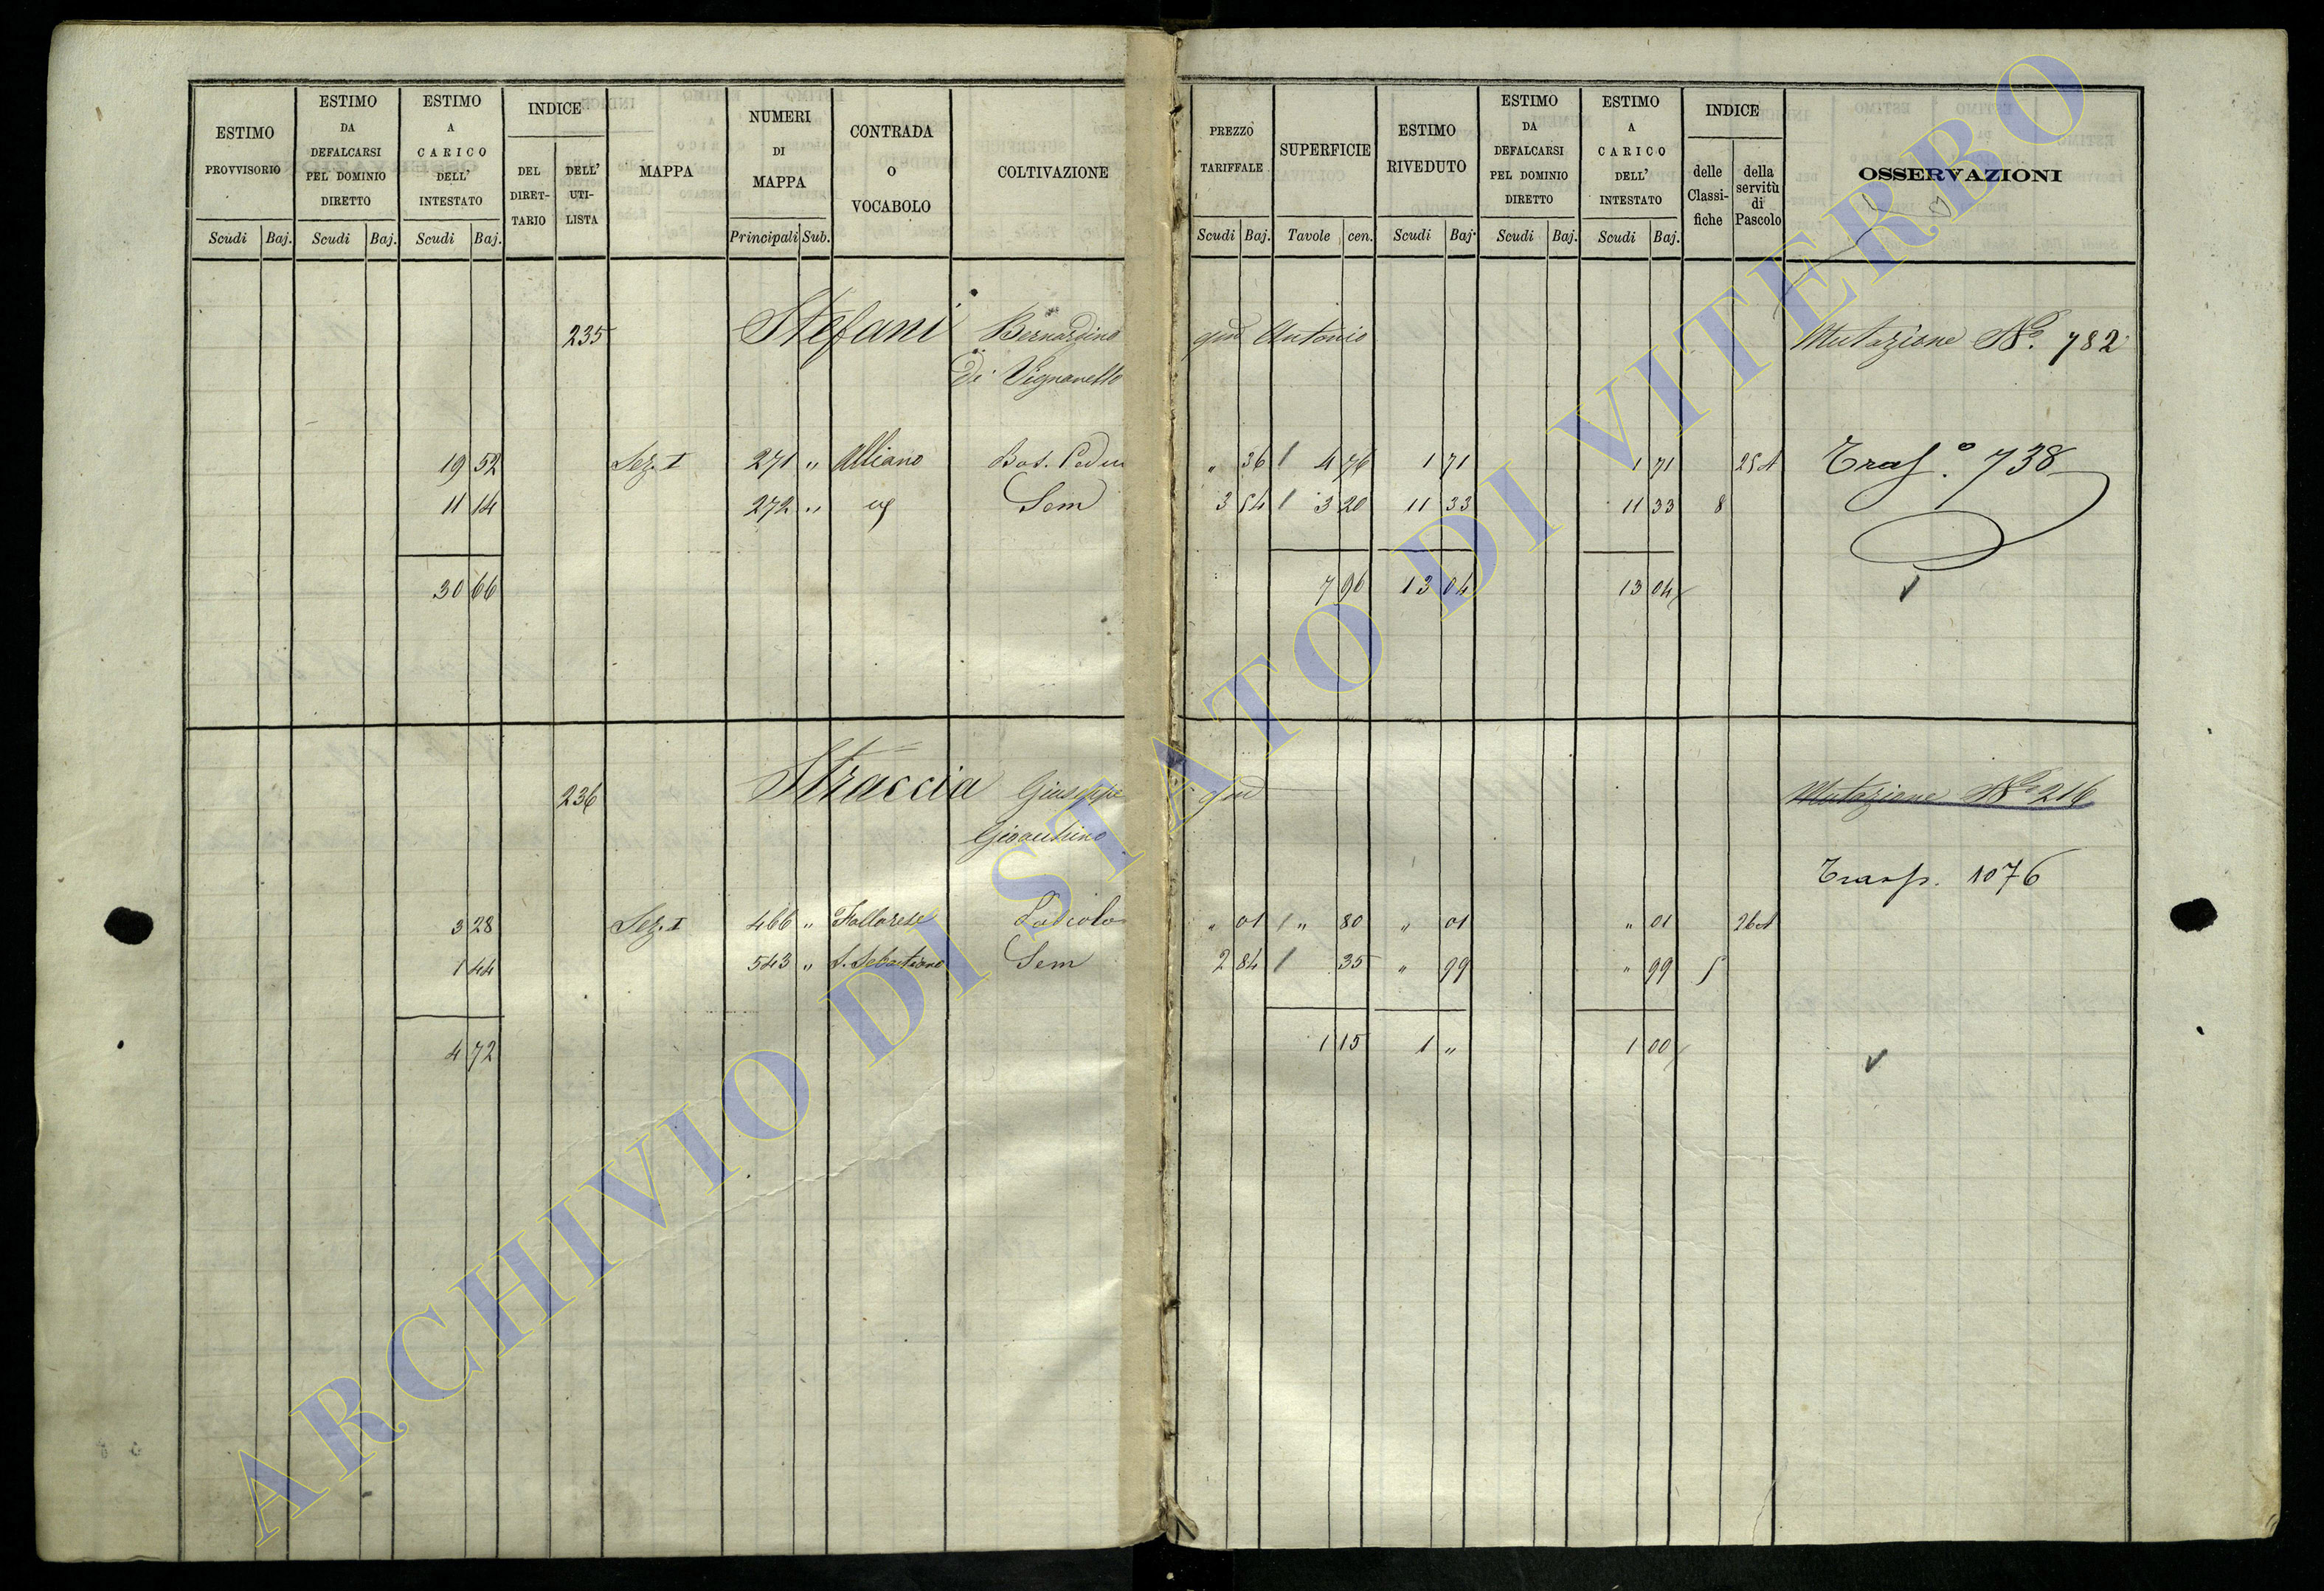 ESTIMO PROVVISORIO
Scudi Baj.
ESTIMO DA DEFALCARSI PEL DOMINIO DIRETTO
Scudi Baj.
ESTIMO A CARICO DELL' INTESTATO
Scudi Baj.
INDICE
DEL DIRET- TARIO
DELL' UTI- LISTA
MAPPA
NUMERI DI MAPPA
Principali Sub.
CONTRADA O VOCABOLO
COLTIVAZIONE
PREZZO TARIFFALE
Scudi Baj.
SUPERFICIE
Tavole cen.
ESTIMO RIVEDUTO
Scudi Baj.
ESTIMO DA DEFALCARSI PEL DOMINIO DIRETTO
Scudi Baj.
ESTIMO A CARICO DELL' INTESTATO
Scudi Baj.
INDICE
delle Classi- fiche
della servitù di Pascolo
OSSERVAZIONI
235 Stefani Bernardino qm Antonio Mutazione No. 782
Di Vignanello
19 52 Sez. I 271 " Alliano Bos. Cedu " 36 4 76 1 71 1 71 25 A Trasf.o 738
11 14 272 " Sem 3 54 3 20 11 33 11 33 8
30 66 7 96 13 04 13 04
236 Straccia Giuseppe qm Mutazione No 216
Gioacchino
Trasp. 1076
3 28 Sez. I 466 " " 01 " 80 " 01 " 01 26 A
1 44 543 " S. Sebastiano Sem 2 84 35 " 99 " 99 5
4 72 1 15 1 " 1 00
ARCHIVIO DI STATO DI VITERBO